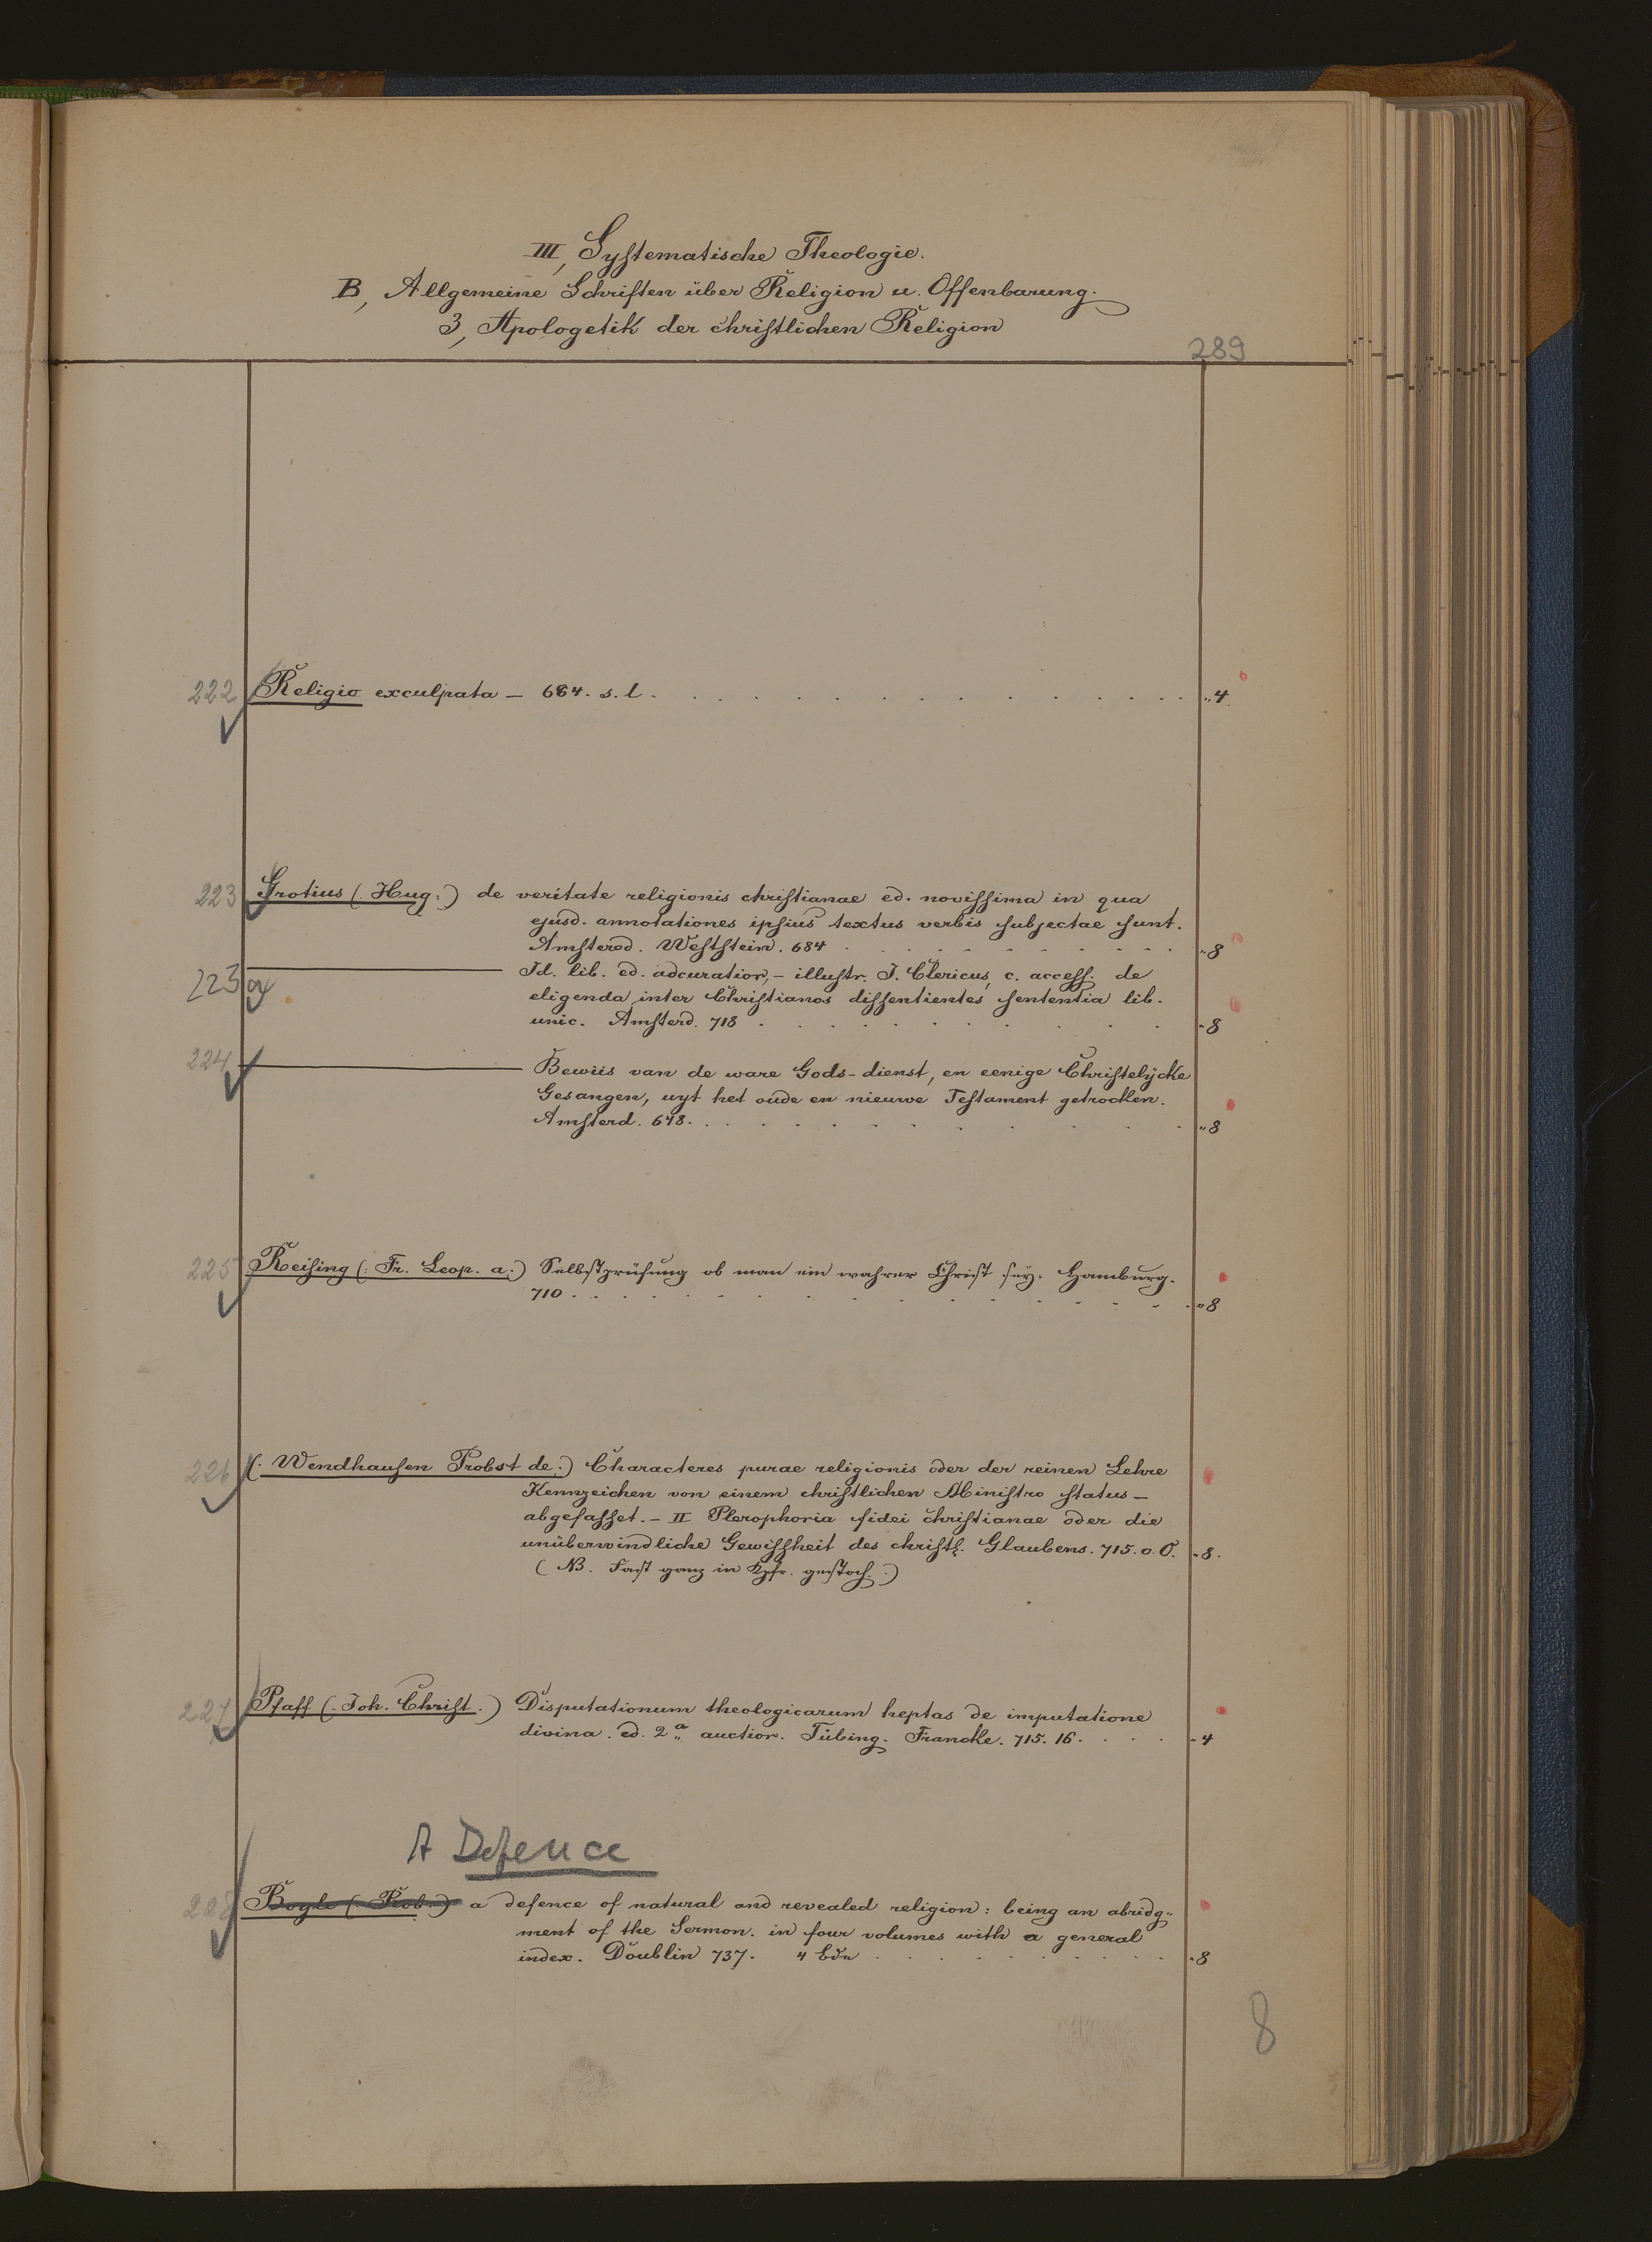 III, Systematische Theologie.
B, Allgemeine Schriften über Religion u. Offenbarung.
3, Apologetik der christlichen Religion
289
222 Religio exculpata — 684. s. l. „4.
223 Grotius (: Hug :) de veritate religionis christianae ed. novissima in qua
ejusd. annotationes ipsius textus verbis subjectae sunt.
Amsterod. Weststein. 684 „8
223a ——— Id. lib. ed. adcuratior, – illustr. J. Clericus, c. access. de
eligenda inter Christianos dissentientes sententia lib.
unic. Amsterd. 718 „8
224 ——— Bewiis van de ware Gods-dienst, en eenige Christelÿcke
Gesangen, uyt het oude en nieuwe Testament getrocken.
Amsterd. 648. „8
225 Reising (: Fr. Leop. a :) Selbstprüfung ob man ein wahrer Christ seÿ. Hamburg.
710 „8
226 (: Wendhausen Probst de :) Characteres purae religionis oder der reinen Lehre
Kennzeichen von einem christlichen Ministro status —
abgefasset. – II Plerophoria fidei christianae oder die
unüberwindliche Gewissheit des christl. Glaubens. 715. o. O. „8.
( NB. Fast ganz in Kpfr. gestoch. )
227 Pfaff (: Joh. Christ. :) Disputationum theologicarum heptas de imputatione
divina. ed. 2a auctior. Tübing. Francke. 715. 16. „4
A Defence
228 Boyle (: Rob :) a defence of natural and revealed religion: being an abridg„
ment of the Sermon. in four volumes with a general
index. Doublin 737. 4 bdn „8
8